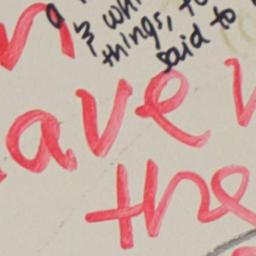 a
& whi
things, to
said to
ave
the